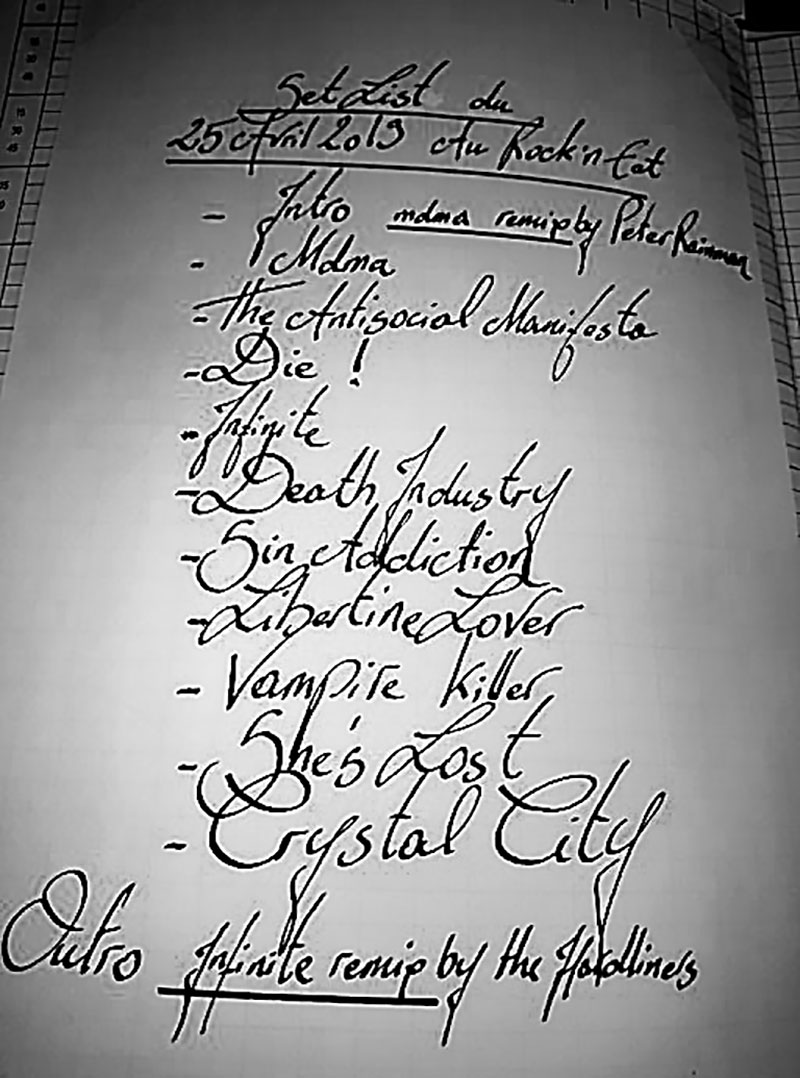 Set List du
25 Avril 2013 Au Rock'n Eat
- Intro mdma remix by Peter Rainman
- Mdma
- The Antisocial Manifesto
- Die !
- Infinite
- Death Industry
- Sin Addiction
- Libertine Lover
- Vampire Killer
- She's Lost
- Crystal City
Outro Infinite remix by the Hardliners